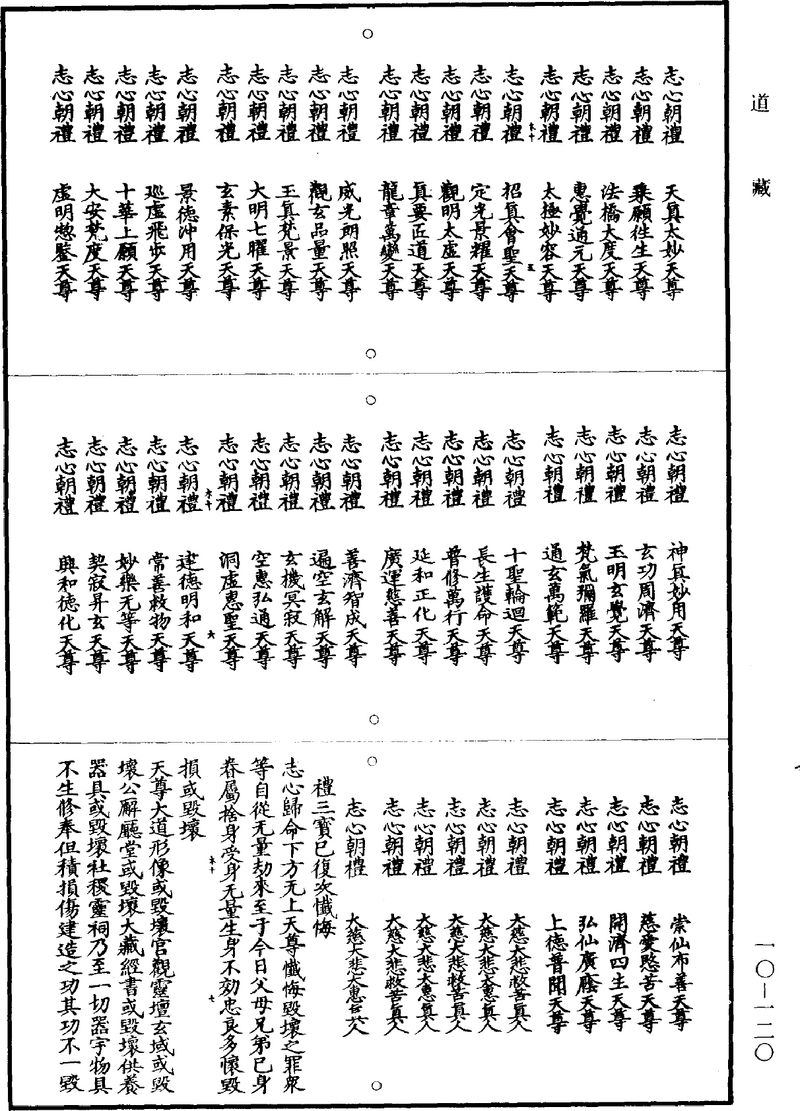 道藏
志心朝禮 天真大妙天尊
志心朝禮 乘願往生天尊
志心朝禮 法橋大度天尊
志心朝禮 惠覺通元天尊
志心朝禮 太極妙容天尊
志心朝禮 招真會聖天尊
志心朝禮 定光景耀天尊
志心朝禮 觀明太虛天尊
志心朝禮 真要正道天尊
志心朝禮 龍章萬變天尊
志心朝禮 威光朗照天尊
志心朝禮 觀玄品量天尊
志心朝禮 玉真梵景天尊
志心朝禮 大明七曜天尊
志心朝禮 玄素保光天尊
志心朝禮 景德沖用天尊
志心朝禮 巡虛飛步天尊
志心朝禮 十華上願天尊
志心朝禮 大安梵度天尊
志心朝禮 虛明惣鑒天尊
志心朝禮 神真妙用天尊
志心朝禮 玄功周濟天尊
志心朝禮 玉明玄覺天尊
志心朝禮 梵氣彌羅天尊
志心朝禮 通玄萬範天尊
志心朝禮 十聖輪迴天尊
志心朝禮 長生護命天尊
志心朝禮 普修萬行天尊
志心朝禮 延和正化天尊
志心朝禮 廣運慈善天尊
志心朝禮 善濟智成天尊
志心朝禮 遍空玄解天尊
志心朝禮 玄機冥寂天尊
志心朝禮 空惠弘通天尊
志心朝禮 洞虛惠聖天尊
志心朝禮 建德明和天尊
志心朝禮 常善救物天尊
志心朝禮 妙樂无等天尊
志心朝禮 契寂昇玄天尊
志心朝禮 興和德化天尊
志心朝禮 崇仙布善天尊
志心朝禮 慈愛愍苦天尊
志心朝禮 開濟四生天尊
志心朝禮 弘仙廣啓天尊
志心朝禮 上德普聞天尊
志心朝禮 大慈大悲救苦真人
志心朝禮 大慈大悲大惠真人
志心朝禮 大慈大悲救苦真人
志心朝禮 大慈大悲大惠真人
志心朝禮 大慈大悲救苦真人
志心朝禮 大慈大悲大惠真人
禮三寶已復次懺悔
志心歸命下方无上天尊懺悔毀壞之罪衆
等自從无量劫來至于今日父母兄弟已身
眷屬捨身受身无量生身不効忠良多懷毀
損或毀壞
天尊大道形像或毀壞宮觀靈壇玄域或毀
壞公廨廳堂或毀壞大藏經書或毀壞供養
器具或毀壞社稷靈祠乃至一切器宇物具
不生修奉但積損傷建造之功其功不一毀
一〇—一二〇